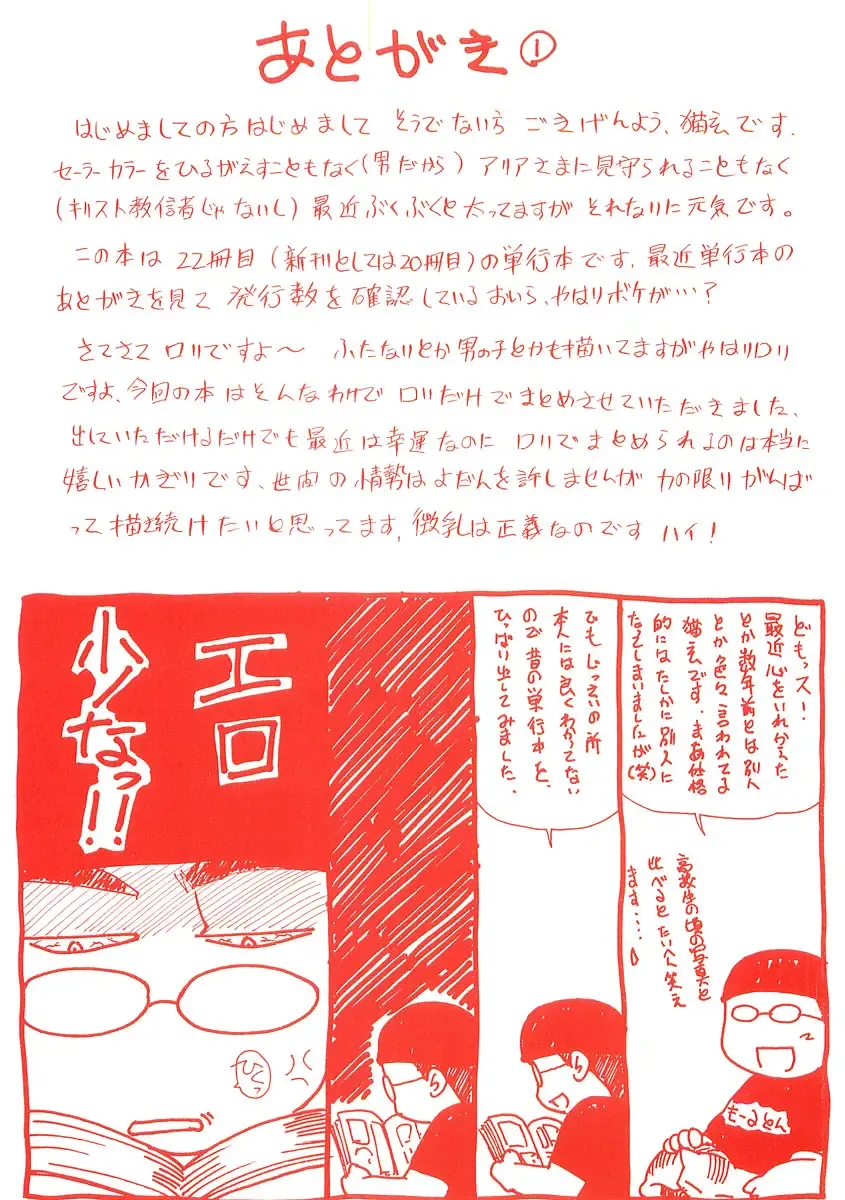 あとがき①
はじめましての方はじめまして そうでない方 ごきげんよう、猫玄です.
セーラーカラーをひるがえすこともなく(男だから) アリアさまに見守られることもなく
(キリスト教信者じゃないし) 最近ぶくぶくと太ってますが それなりに元気です。
この本は 22冊目 (新刊としては20冊目)の単行本です. 最近単行本の
あとがきを見て 発行数を確認しているおいら、やはりボケが…?
さてさて ロリですよ〜 ふたなりとか男の子とかも描いてますがやはりロリ
ですよ、今回の本はそんなわけで ロリだけで まとめさせていただきました、
出していただけるだけでも最近は幸運なのに ロリでまとめられるのは本当に
嬉しいかぎりです、世間の情勢はよだんを許しませんが 力の限りがんば
って描き続けたいと思ってます, 微乳は正義なのです ハイ!
どもっス!
最近心をいれかえた
とか数年前とは別人
とか色々言われてる
猫玄です. まあ体格
的にはたしかに別人に
なってしまいましたが(笑)
高校生の頃の写真と
比べるとたいへん笑え
ます....
もーるとん
でもじっさいの所
本人には良くわかってない
ので昔の単行本を、
ひっぱり出してみました.
エロ
少なっ!!
ひくっ